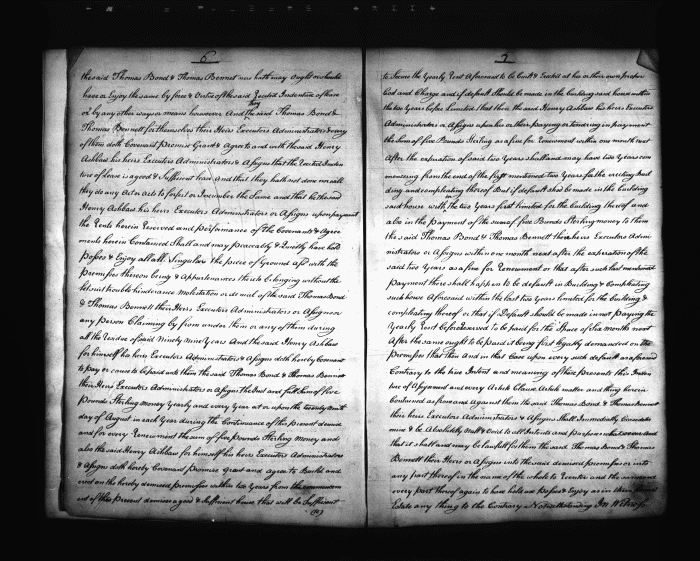 6
the said Thomas Bond & Thomas Bennet was hath may Ought or should
have or Enjoy the same by force & Virtue of the said Recited Indenture of lease
or by any other ways or means however And they the said Thomas Bond &
Thomas Bennett for themselves their Heirs Executors Administrators & every
of them doth Covenant Promise Grant & Agree to and with the said Henry
Ashbaw his heirs Executors Administrators & Assigns that the Recited Inden
ture of Lease is a good & Sufficient lease And that they hath not done nor will
they do any Act or Acts to forfeit or Incumber the Same and that he the said
Henry Ashbaw his heirs Executors Administrators or Assigns upon payment
the Rents herein Reserved and performance of the Covenants & Agree
ments herein Contained Shall and may Peaceably & Quietly have hold
Possess & Enjoy all & Singular the piece of Ground afsd with the
Premisses thereon being & Appurtenances thereto belonging without the
let suit trouble hinderance Molestation or denial of the said Thomas Bond
& Thomas Bennett their Heirs Executors Administrators or Assigns or
any person Claiming by from or under them or any of them during
all the Residue of said Ninety Nine Years And the said Henry Ashbaw
for himself his heirs Executors Administrators & Assigns doth hereby Covenant
to pay or cause to be paid unto them the said Thomas Bond & Thomas Bennett
their Heirs Executors Administrators or Assigns the Just and full Sum of five
Pounds Sterling Money Yearly and every Year at or upon the twenty Ninth
day of August in each Year during the Continuance of this present demise
and for every Renewment the sum of five pounds Sterling Money and
also the said Henry Ashbaw for himself his heirs Executors Administrators
& Assigns doth hereby Covenant Promise Grant and agree to Build and
erect on the hereby demised premisses within two Years from the commencem
ent of this Present demise a good & Sufficient house that will be Sufficient
(to)
7
to Secure the Yearly Rent Aforesaid to be built & Erected at his or their own proper
Cost and Charge and if default should be made in the building said house within
the two Years before Limited that then the said Henry Ashbaw his heirs Executors
Administrators or Assigns upon his or their paying or tendering in payment
the Sum of five Pounds Sterling as a fine for Renewment within one month next
After the expiration of said two Years shall and may have two Years com
mencing from the end of the first mentioned two Years for the erecting buil
ding and compleating thereof But if default shall be made in the building
said house with the two Years first limited for the building thereof and
also in the payment of the sum of five Pounds Sterling money to them
the said Thomas Bond & Thomas Bennett their heirs Executors Admi
nistrators or Assigns within one month next after the expiration of the
said two Years as a fine for Renewment or that after such last mentioned
Payment there shall happen to be default in Building & Compleating
such house Aforesaid within the last two Years limited for the building &
compleating thereof or that if Default should be made in not Paying the
Yearly Rent before Reserved to be paid for the Space of Six Months next
After the same ought to be paid it being first legally demanded on the
Premisses that then and in that Case upon every such default as aforesaid
Contrary to the true Intent and meaning of these presents this Inden
ture of Assignment and every Article Clause Matter and thing herein
Contained as from and Against them the said Thomas Bond & Thomas Bennett
their heirs Executors Administrators & Assigns Shall Immediately Cease deter
mine & be Absolutely Null & Void to all Intents and Purposes whatsoever And
that it shall and may be lawful for them the said Thomas Bond & Thomas
Bennett their Heirs or Assigns into the said demised premisses or into
any part thereof in the name of the whole to Reenter and the same and
every part thereof again to have hold Possess & Enjoy as in their former
Estate any thing to the Contrary Notwithstanding In Witness